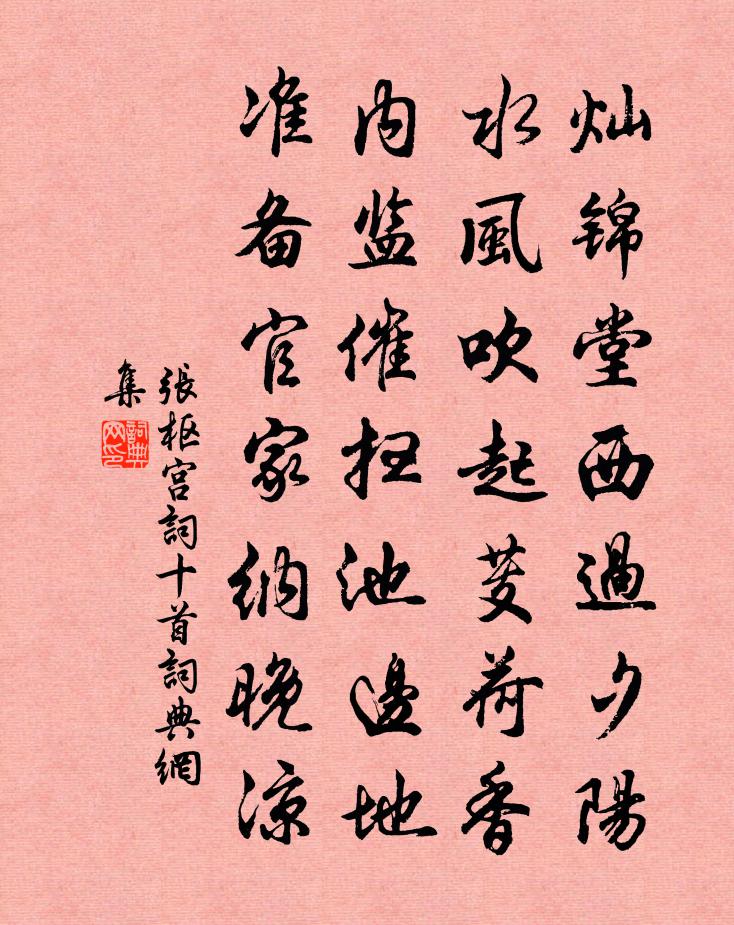 灿锦堂西過夕陽
水風吹起芰荷香
内监催扫池邊地
准备官家納晚凉
張枢宫詞十首詞典網
集
詞典
网印